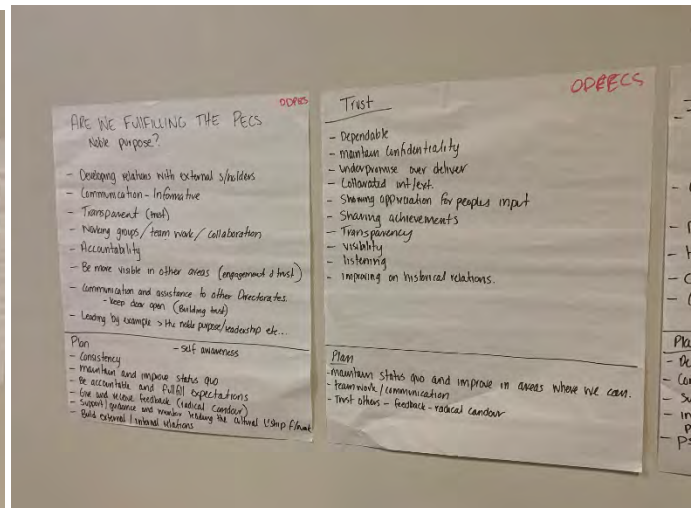 ODPECS
ARE WE FULFILLING THE PECS
Noble purpose?
- Developing relations with external s/holders
- Communication - Informative
- Transparent (trust)
- Working groups / team work / collaboration
- Accountability
- Be more visible in other areas (engagement & trust)
- Communication and assistance to other Directorates.
- keep door open (Building trust)
- Leading by example > the noble purpose/leadership etc...
Plan
- self awareness
- Consistency
- maintain and improve status quo
- Be accountable and fulfill expectations
- Give and receive feedback (radical candour)
- Support/guidance and mentor leading the cultural L'ship f/work
- Build external / internal relations
ODPECS
Trust
- Dependable
- maintain confidentiality
- underpromise over deliver
- int/ext.
- Showing appreciation for peoples input
- Sharing achievements
- Transparency
- visibility
- listening
- improving on historical relations.
Plan
- maintain status quo and improve in areas where we can.
- team work / communication
- Trust others - feedback - radical candour
Pla